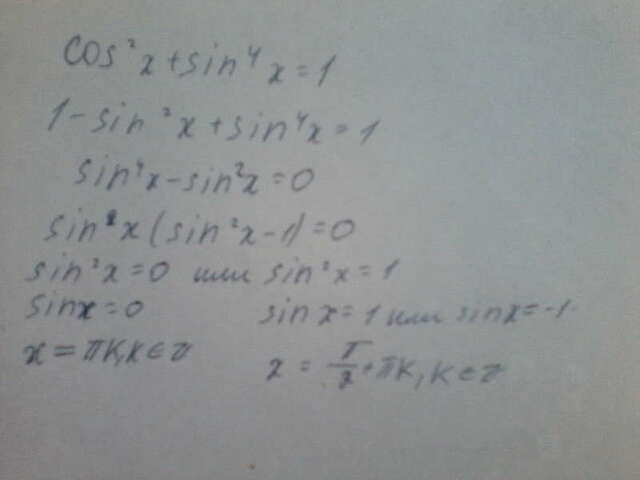 cos²x+sin⁴x=1
1-sin²x+sin⁴x=1
sin⁴x-sin²x=0
sin²x(sin²x-1)=0
sin²x=0 или sin²x=1
sinx=0 sinx=1 или sinx=-1
x=πk,k∈z x=π/2+πk,k∈z